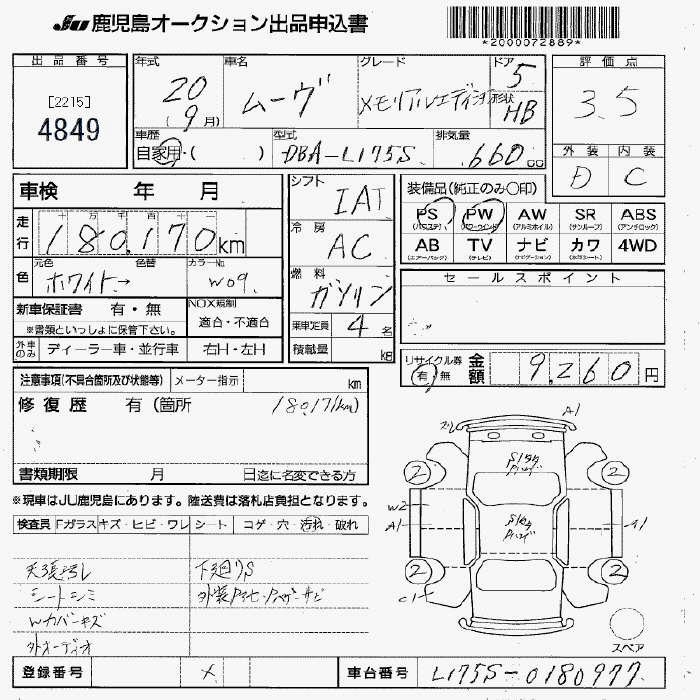 JU 鹿児島オークション出品申込書
*2000072889*
出品番号
[2215]
4849
年式
20
(9月)
車名
ムーヴ
グレード
メモリアルエディション
ドア
5
形状
HB
評価点
3.5
車歴
自家用・( )
型式
DBA-L175S
排気量
660cc
外装 内装
D C
車検 年 月
シフト
IAT
装備品(純正のみ○印)
PS PW AW SR ABS
(パワステ) (パワーウインド) (アルミホイル) (サンルーフ) (アンチロック)
AB TV ナビ カワ 4WD
(エアーバッグ) (テレビ) (ナビゲーション) (本皮シート)
走行
十 万 千 百 十
180,170km
冷房
AC
色
元色 色替 カラーNo.
ホワイト→ W09
燃料
ガソリン
セールスポイント
新車保証書 有・無
※書類といっしょに保管下さい。
NOX規制
適合・不適合
乗車定員 4 名
外車のみ ディーラー車・並行車 右H・左H
積載量 kg
リサイクル券
有 無
金額 9,260円
注意事項(不具合箇所及び状態等) メーター指示 km
修復歴 有(箇所 18017(km)
書類期限 月 日迄に名変できる方
※現車はJU鹿児島にあります。陸送費は落札店負担となります。
検査員 Fガラス キズ・ヒビ・ワレ シート コゲ・穴・汚れ・破れ
下廻りS
シートシミ
Wカバーキズ
外オーディオ
A1
W2
A1
A1
C1
2
2
2
2
スペア
登録番号 メ 車台番号 L175S-0180977